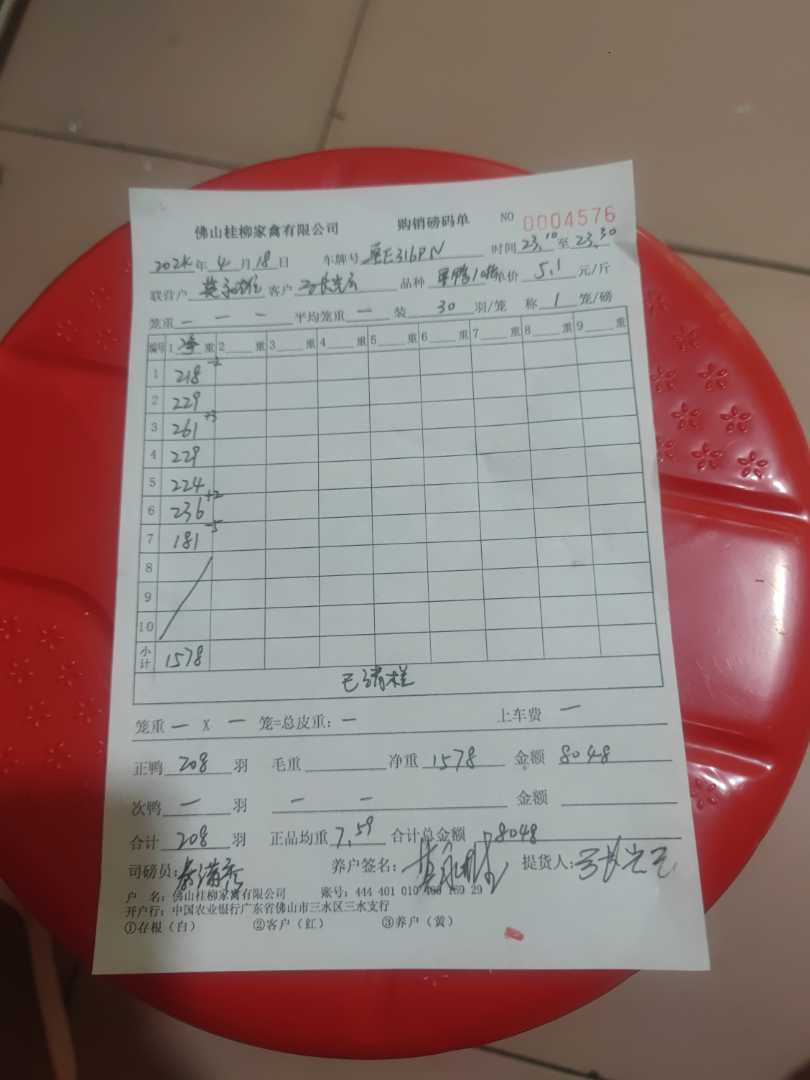 佛山桂柳家禽有限公司 购销磅码单 NO 0004576
2024年4月18日 车牌号 316PN 时间 23.10 至 23.30
联营户 客户 品种 单价 5.1 元/斤
笼重 — — — 平均笼重 — 装 30 羽/笼 称 1 笼/磅
编号 1 净 重 2 重 3 重 4 重 5 重 6 重 7 重 8 重 9 重
1 218 -2
2 229
3 261 +3
4 229
5 224
6 236 +2
7 181 -5
8
9
10
小计 1578
已清栏
笼重 — X — 笼=总皮重: — 上车费 —
正鸭 208 羽 毛重 净重 1578 金额 8048
次鸭 — 羽 — — 金额
合计 208 羽 正品均重 7.59 合计总金额 8048
司磅员: 养户签名: 提货人:
户 名: 佛山桂柳家禽有限公司 账号: 444 401 010 400 169 29
开户行: 中国农业银行广东省佛山市三水区三水支行
①存根(白) ②客户(红) ③养户(黄)